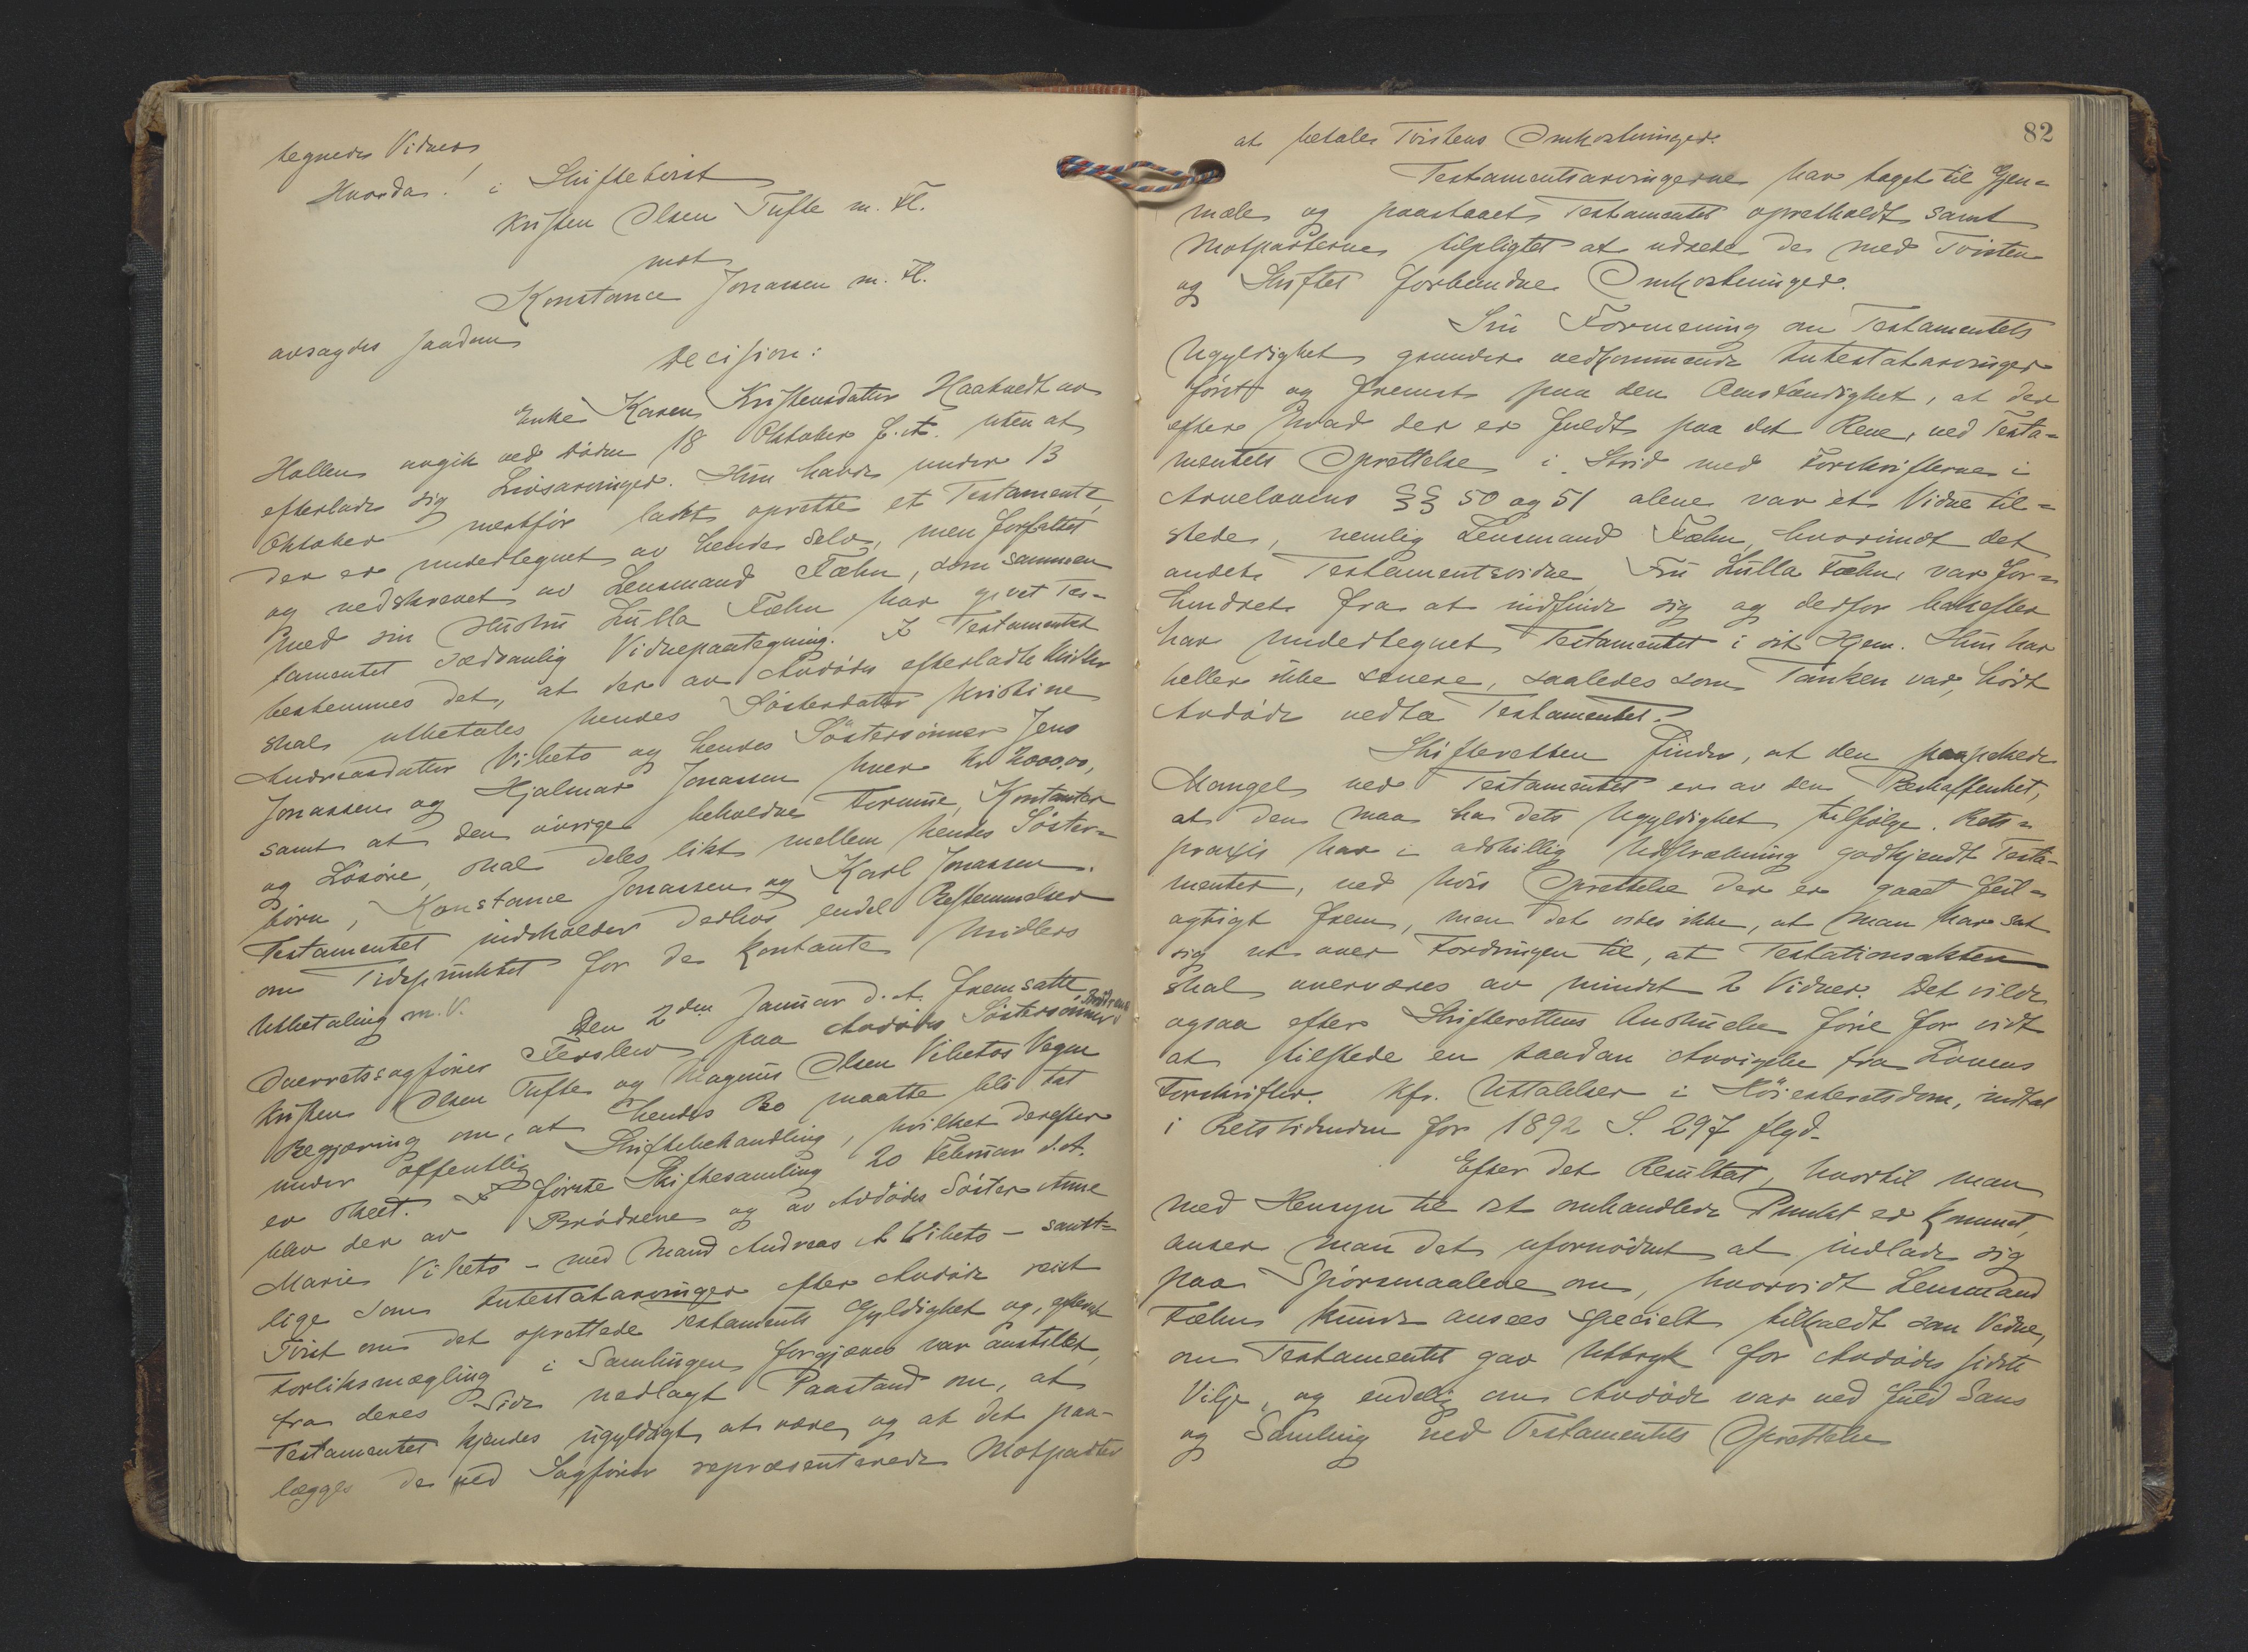 tegnede Vidner
Hvorda! i Skiftetvist
Kristen Olsen Tufte m. Fl.
mot
Konstance Jonassen m. Fl.
avsagdes saadan
Decision:
Enke Karen Kristensdatter Haatvedt av
Hollen avgik ved Döden 18 Oktober f. A. uten at
efterlade sig Livsarvinger. Hun havde under 13
Oktober næstför ladt oprette et Testamente,
der er undertegnet av hende selv, men forfattet
og nedskrevet av Lensmand Fæhn, som sammen
med sin Hustru Lulla Fæhn har givet Tes-
tamentet sædvanlig Vidnepaategning. I Testamentet
bestemmes det, at der av Avdödes efterladte Midler
skal utbetales hendes Söstersdatter Kristine
Andreasdatter Viheto og hendes Söstersönner Jens
Jonassen og Hjalmar Jonassen hver Kr 2000,00,
samt at den övrige beholdne Formue, Kontanter
og Lösöre, skal deles likt mellem hendes Söster-
börn, Konstance Jonassen og Karl Jonassen.
Testamentet indeholder derhos endel Bestemmelser
om Tidspunktet for de kontante Midlers
Utbetaling m. V.
Den 2den Januar d. A. fremsatte
Overretssagförer Ferslew paa Avdödes Söstersönner Brödrene
Kristen Olsen Tufte og Magnus Olsen Vihetos Vegne
Begjæring om, at hendes Bo maatte bli tat
under offentlig Skiftebehandling, hvilket derefter
er skeet. I förste Skiftesamling 20 Februar d. A.
blev der av Brödrene og av Avdödes Söster Anne
Marie Viheto – med Mand Andreas A Viheto – samt-
lige som Intestatarvinger efter Avdöde reist
Tvist om det oprettede Testaments Gyldighet og, efterat
Forliksmægling i Samlingen forgjæves var anstillet,
fra deres Side nedlagt Paastand om, at
Testamentet kjendes ugyldigt at være, og at det paa-
lægges de ved Sagförer repræsenterede Motparter
82
at betale Tvistens Omkostninger.
Testamentsarvingerne har taget til Gjen-
mæle og paastaaet Testamentet opretholdt samt
Motparterne tilpligtet at udrede de med Tvisten
og Skiftet forbundne Omkostninger.
Sin Formening om Testamentets
Ugyldighet grunder vedkommende Intestatarvinger
först og fremst paa den Omstændighet, at der
efter hvad der er fuldt paa det Rene, ved Testa-
mentets Oprettelse i Strid med Forskrifterne i
Arvelovens §§ 50 og 51 alene var et Vidne til-
stede, nemlig Lensmand Fæhn, hvorimot det
andet Testamentsvidne Fru Lulla Fæhn var for-
hindret fra at indfinde sig og derfor bakefter
har undertegnet Testamentet i sit Hjem. Hun har
heller ikke senere, saaledes som Tanken var, hört
Avdöde vedta Testamentet.
Skifteretten finder, at den paapekede
Mangel ved Testamentet er av den Beskaffenhet,
at den maa ha dets Ugyldighet tilfölge. Rets-
praxis har i adskillig Utstrækning godkjendt Testa-
menter, ved hvis Oprettelse der er gaaet feil-
agtigt frem, men det vites ikke, at man har sat
sig ut over Fordringen til, at Testationsakten
skal overværes av mindst 2 Vidner. Det vilde
ogsaa efter Skifterettens Anskuelse före for vidt
at tilstede en saadan Avvigelse fra Lovens
Forskrifter. Kfr. Uttalelser i Höiesteretsdom, indtat
i Retstidenden for 1892 S. 297 flgd.
Efter det Resultat, hvortil man
med Hensyn til det omhandlede Punkt er kommet,
anser man det ufornödent at indlade sig
paa Spörsmaalene om, hvorvidt Lensmand
Fæhn kunde ansees specielt tilkaldt som Vidne,
om Testamentet gav Uttryk for Avdödes sidste
Vilje, og endelig om Avdöde var ved fuld Sans
og Samling ved Testamentets Oprettelse